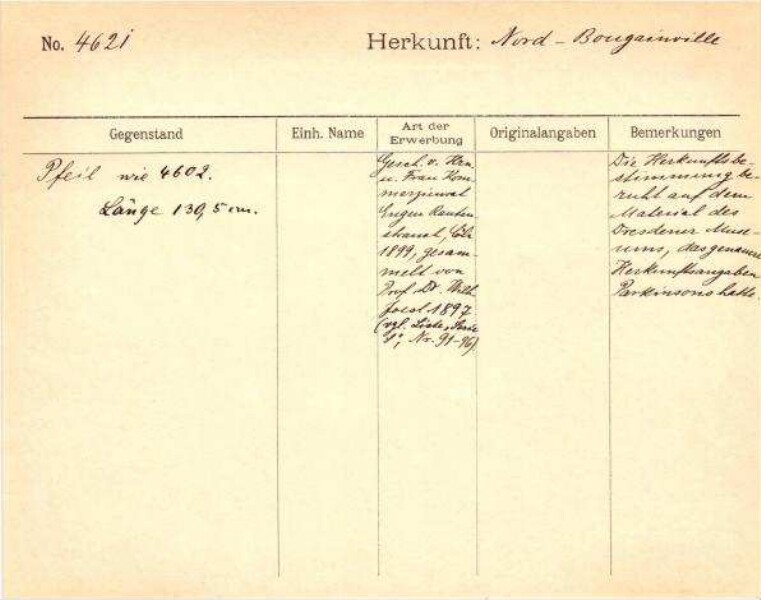 No. 4621 Herkunft: Nord - Bougainville
Gegenstand Einh. Name Art der Erwerbung Originalangaben Bemerkungen
Pfeil wie 4602.
Länge 130,5 cm.
Gesch. v. Hrn.
u. Frau Kom-
merzienrat
Eugen Rauten-
strauch, Cöln
1899, gesam-
melt von
Prof. Dr. Wilh.
Joest 1897
(vgl. Liste, Serie
Nr. 91-96)
Die Herkunftsbe-
stimmung be-
ruht auf dem
Material des
Dresdener Muse-
ums, das genauere
Herkunftsangaben
Parkinsons hatte.